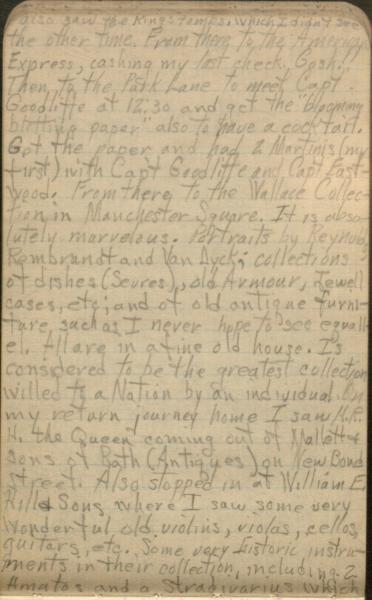 also saw the Kings tombs, which I didn't see
the other time. From there to the American
Express, cashing my last check. Gosh!!
Then, to the Park Lane to meet Capt.
Goodliffe at 12:30 and get the "blooming
blotting paper" also to have a cocktail.
Got the paper and had 2 Martinis (my
first) with Capt Goodliffe and Capt East-
wood. From there to the Wallace Collec-
tion in Manchester Square. It is abso-
lutely marvelous. Portraits by Reynolds
Rembrandt and Van Dyck; collections
of dishes (Seures), old Armour, Jewell
cases, etc; and of old antique furni-
ture such as I never hope to see equall-
ed. All are in a fine old house. Is
considered to be the greatest collection
willed to a Nation by an individual. On
my return journey home I saw H.R.
H. the Queen coming out of Mallett &
Sons of Bath (Antiques) on New Bond
Street. Also stopped in at William E.
Hill & Sons, where I saw some very
wonderful old violins, violas, cellos,
guitars, etc. Some very historic instru-
ments in their collection, including 2
Amatos and a Stradivarius which